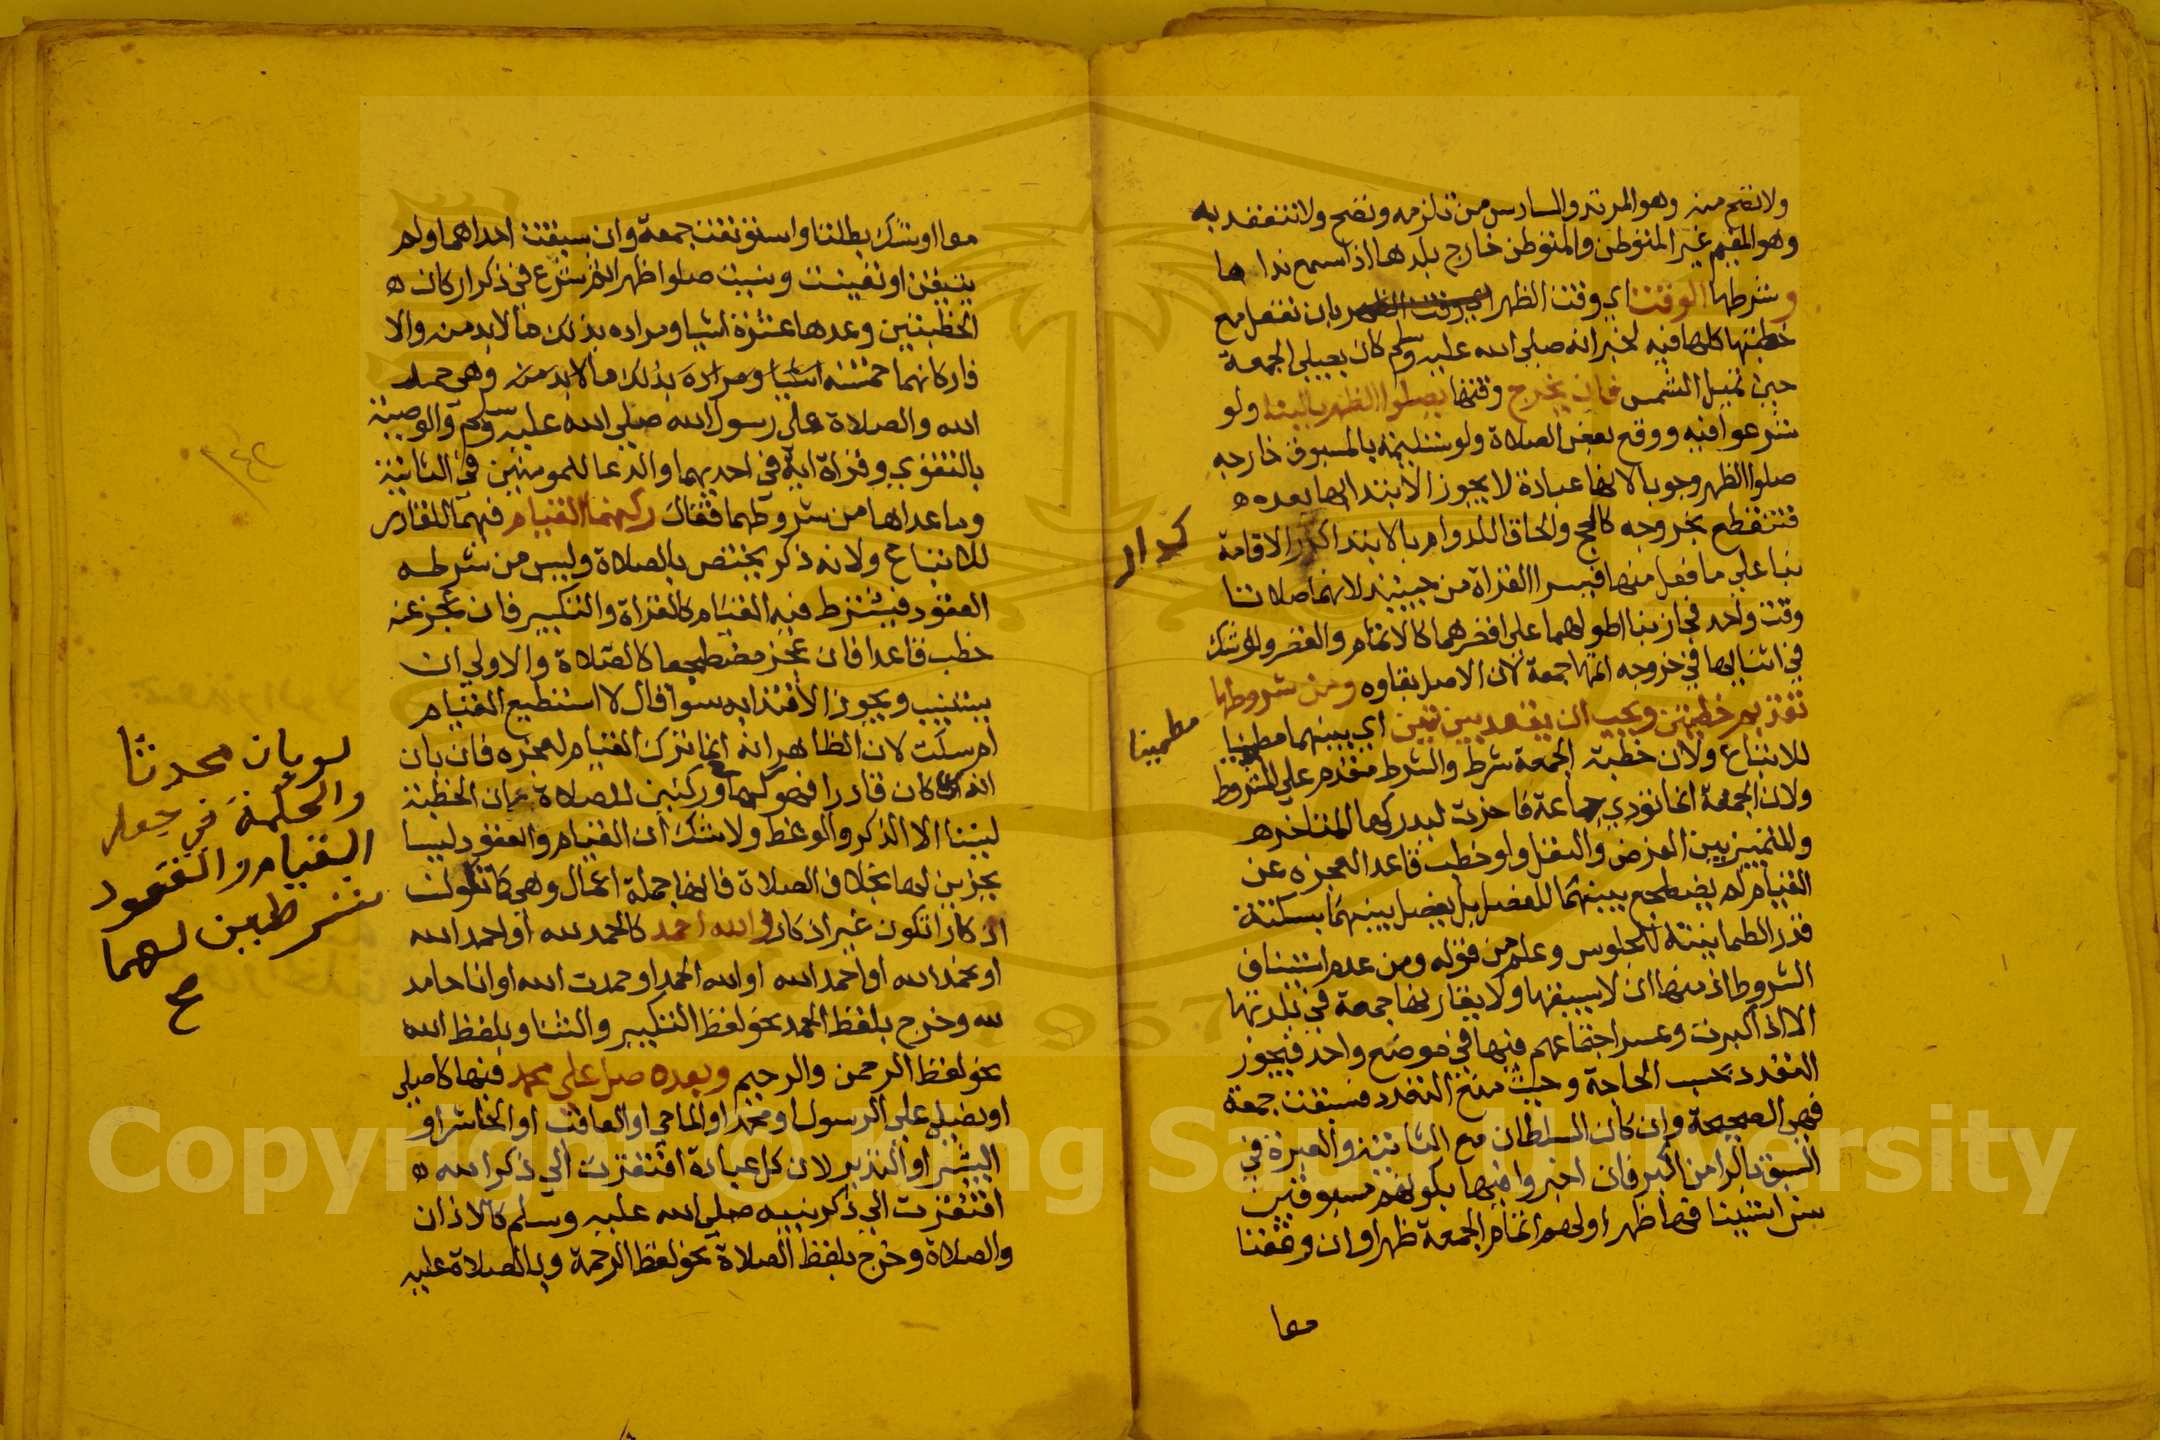 ولا تصح منه وهو المرتد والسادس من تلزمه وتصح ولا تنعقد به
وهو المقيم غير المتوطن والمتوطن خارج بلدها اذا سمع نداها
وشرطها الوقت اي وقت الظهر اي وقت الظهر بان تفعل مع
خطبتها كلها فيه لخبر انه صلي الله عليه وسلم كان يصلي الجمعة
حين تميل الشمس فان يخرج وقتها يصلوا الظهر بالبنا ولو
شرعوا فيه ووقع بعض الصلاة ولو تسليمة بالمسبوق خارجه
صلوا الظهر وجوبا لانها عبادة لا يجوز الابتدا بها بعده ه
فتنقطع بخروجه كالحج والحاقا للدوام بالابتدا كدار الاقامة
كدار
بنا علي ما فعل منها فيسرا القراة من حينيذ لانهما صلاتا
وقت واحد فجاز بنا اطولهما علي اقصرهما كالاتمام والقصر ولو شك
في اثنايها في خروجه اتمها جمعة لان الاصل بقاوه ومن شروطها
تقديم خطبتين ويجب ان يقعد بين تين اي بينهما مطمينا
مطمينا
للاتباع ولان خطبة الجمعة شرط والشرط مقدم علي المشروط
ولان الجمعة انما تودي جماعة فاخرت ليدركها المتاخر ه
وللتمييز بين الفرض والنفل ولو خطب قاعدا لعجزه عن
القيام لم يضطجع بينهما للفصل بل يفصل بينهما بسكتة
قدر الطمانينة للجلوس وعلم من قوله ومن عدم استيناف
الشروط اذ منها ان لا يسبقها ولا يقارنها جمعة في بلدتها
الا اذا كبرت وعسر اجتماعهم فيها في موضع واحد فيجوز
التعدد بحسب الحاجة وحيث منع التعدد فسبقت جمعة
فهي الصحيحة وان كان السلطان مع الثانية والعبرة في
السبق بالرا من اكبر فان اخبروا فيها بكونهم مسبوقين
سن استينافها ظهرا ولهم اتمام الجمعة ظهرا وان وقعتا
معا
معا او شك بطلتا واستونفت جمعة وان سبقت احداهما ولم
يتيقن او تعينت ونسيت صلوا ظهرا ثم شرع في ذكر اركان ه
الخطبتين وعدها عشرة اشيا ومراده بذلك ما لا بد منه والا
فاركانهما خمسة اشيا ومراده بذلك ما لا بد منه وهي حمد
الله والصلاة علي رسول الله صلي الله عليه وسلم والوصية
بالتقوي وقراة اية في احديهما والدعا للمومنين في الثانية
وما عداها من شروطهما فقال ركنهما القيام فيهما للقادر
للاتباع ولانه ذكر يختص بالصلاة وليس من شرطه
القعود فيشترط فيه القيام كالقراة والتكبير فان عجز عنه
خطب قاعدا فان عجز مضطجعا كالصلاة والاولي ان
يستنيب ويجوز الاقتدا به سوا قال لا استطيع القيام
ام سكت لان الظاهر انه انما ترك القيام لعجزه فان بان
انه كان قادرا فهو كما وركنين للصلاة بان الخطبة
ليستا الا الذكر والوعظ ولا شك ان القيام والقعود ليسا
بجزين لها بخلاف الصلاة فانها جملة اعمال وهي كما تكون
اذكارا تكون غير اذكار والله احمد كالحمد لله او احمد الله
او نحمد الله او احمد الله او لله الحمد او حمدت الله او انا حامد
لله وخرج بلفظ الحمد نحو لفظ التكبير والثنا وبلفظ الله
نحو لفظ الرحمن والرحيم وبعده صل علي محمد فيها كاصلي
او نصلي علي الرسول او محمد او الماحي او العاقب او الحاشر او
البشير او النذير لان كل عبادة افتقرت الي ذكر الله ه
افتقرت الي ذكر نبيه صلي الله عليه وسلم كالاذان
والصلاة وخرج بلفظ الصلاة نحو لفظ الرحمة وبالصلاة عليه
لو بان محدثا
والحكمة في جعل
القيام والقعود
شرطين لهما
صح
Copyright © King Saud University
1957